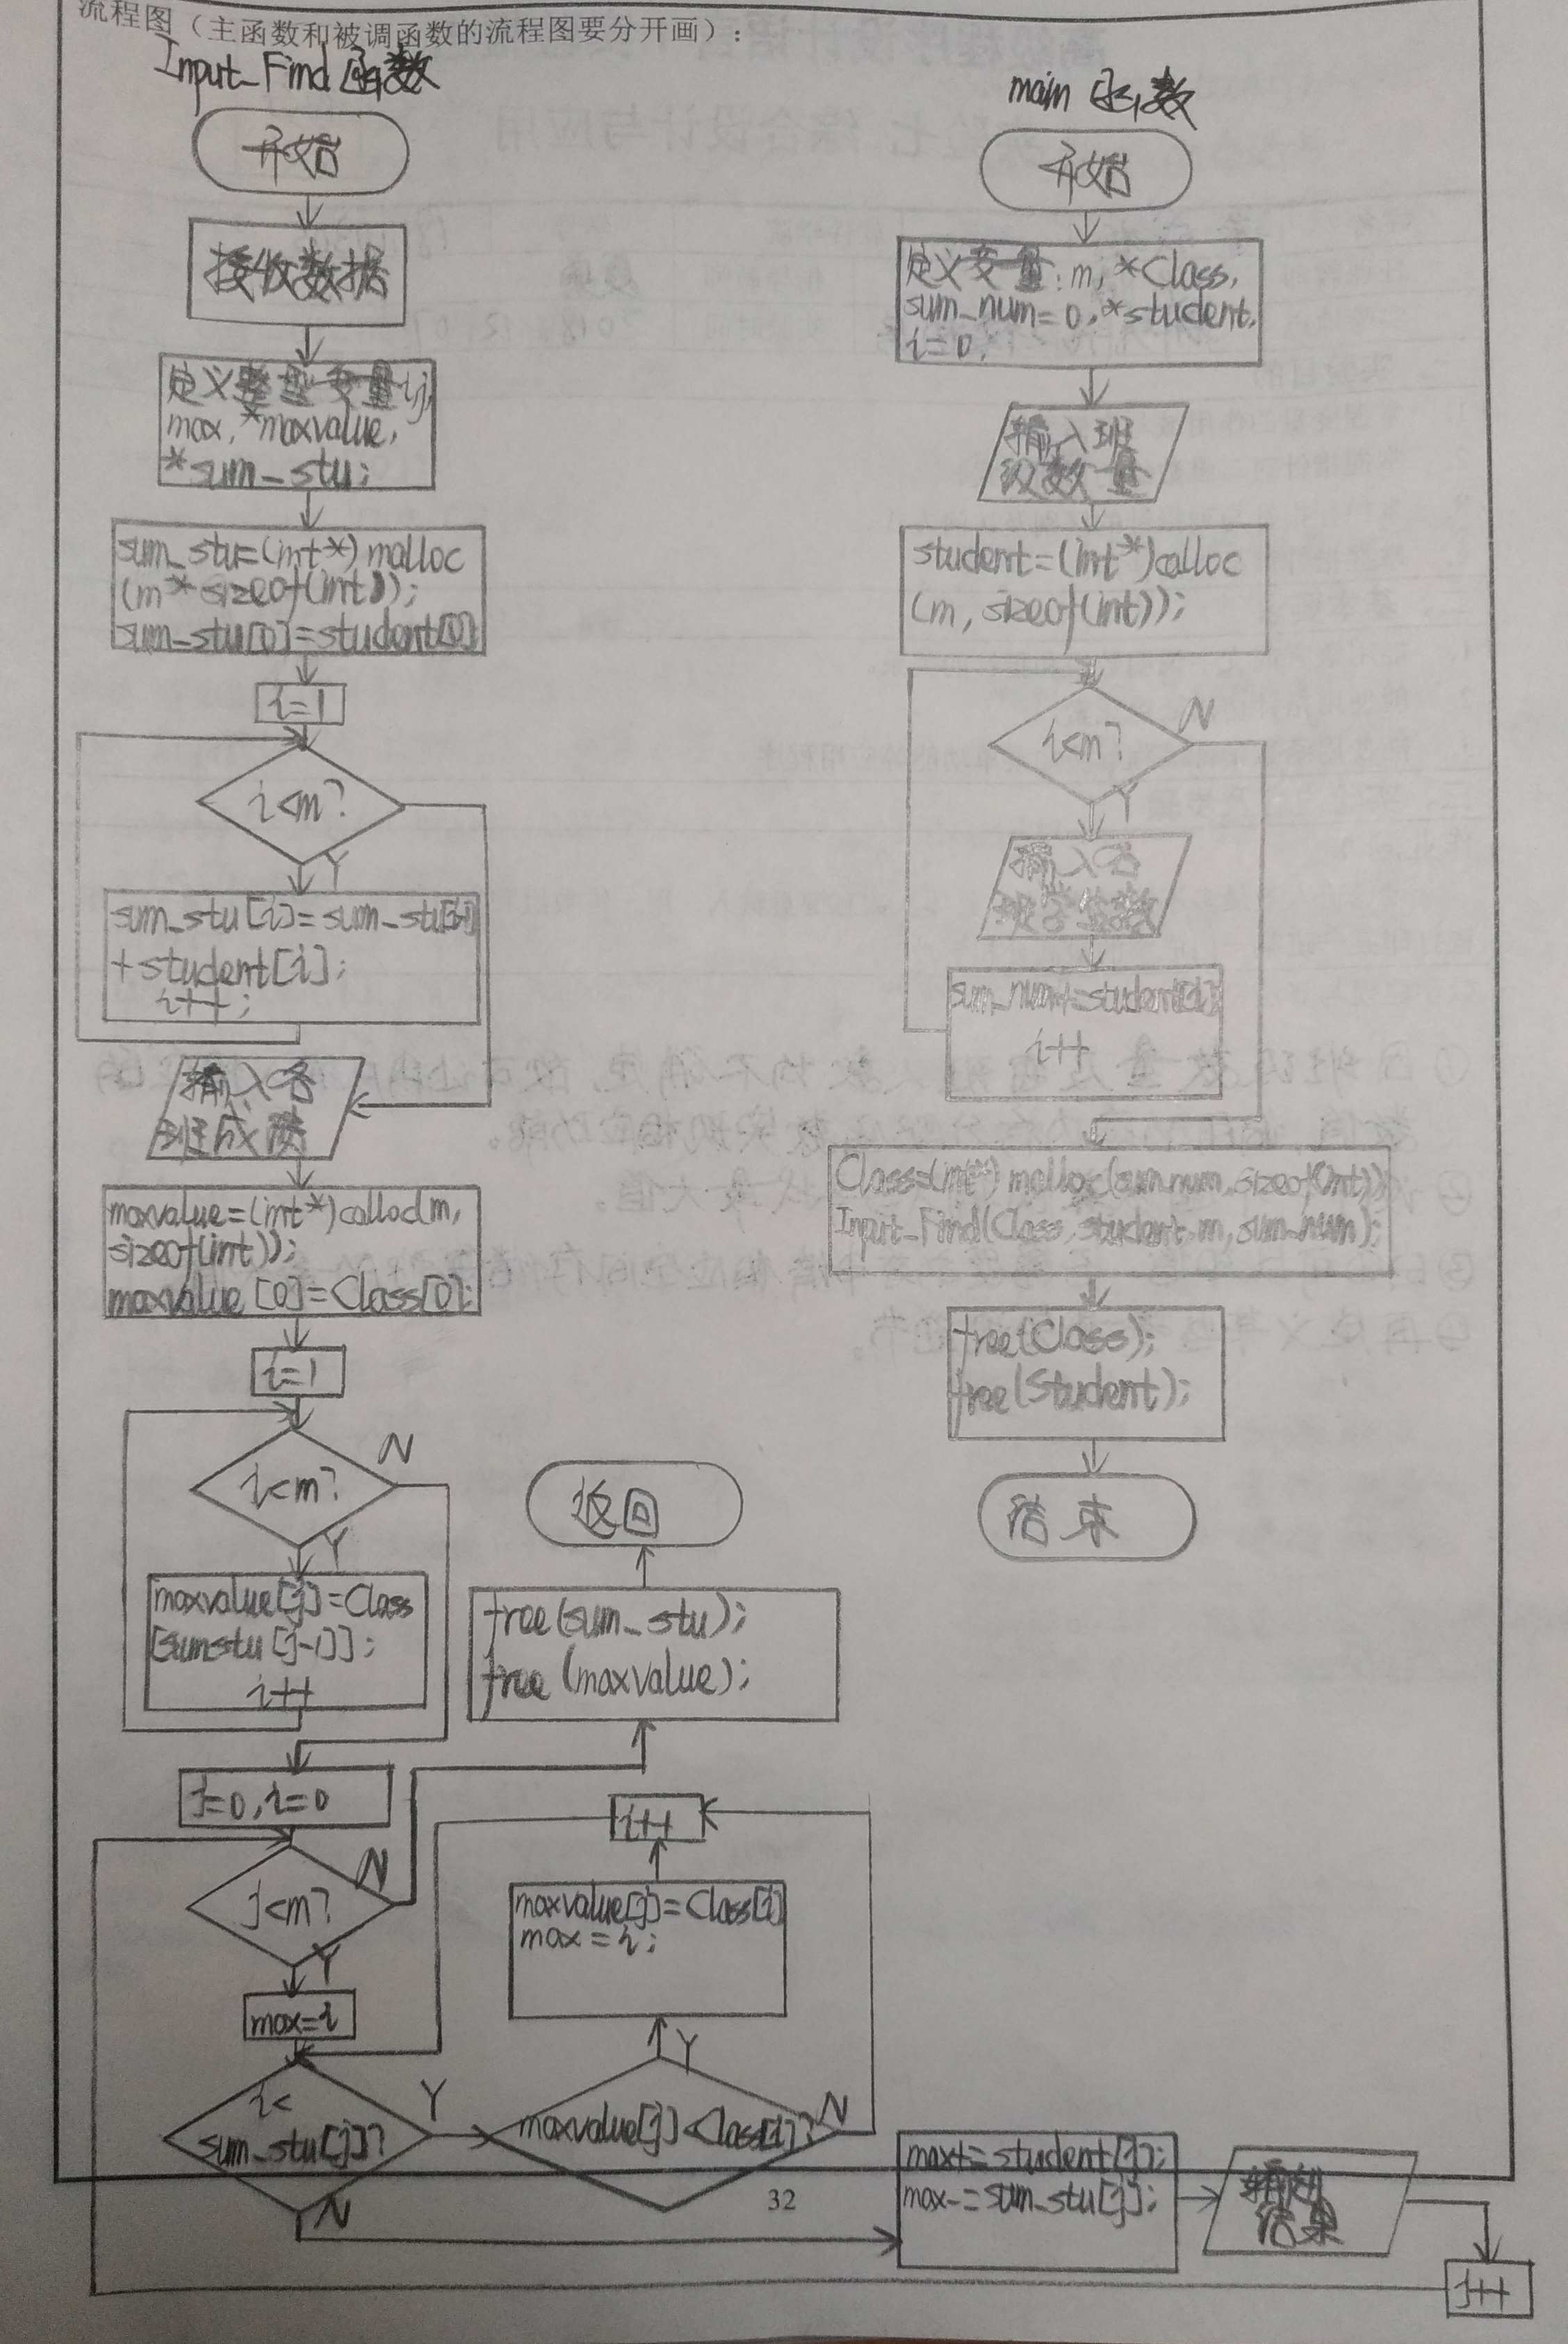 流程图（主函数和被调函数的流程图要分开画）：
Input_Find 函数
开始
接收数据
定义整型变量i,j,
max, *maxvalue,
*sum_stu;
sum_stu=(int*) malloc
(m*sizeof(int));
sum_stu[0]=student[0]
i=1
i<m?
Y
sum_stu[i]=sum_stu[i-1]
+student[i];
i++;
输入各
班成绩
maxvalue=(int*)calloc(m,
sizeof(int));
maxvalue[0]=Class[0];
i=1
i<m?
N
Y
maxvalue[j]=Class
[sum_stu[j-1]];
i++
j=0,i=0
j<m?
N
Y
max=i
i<
sum_stu[j]?
Y
N
maxvalue[j]<Class[i]?
Y
N
maxvalue[j]=Class[i]
max=i;
i++
max+=student[j];
max-=sum_stu[j];
输出
结果
j++
free(sum_stu);
free(maxvalue);
返回
main 函数
开始
定义变量:m, *Class,
sum_num=0, *student,
i=0,
输入班
级数量
student=(int*)calloc
(m, sizeof(int));
i<m?
N
Y
输入各
班学生数
sum_num+=student[i];
i++
Class=(int*) malloc(sum_num,sizeof(int))
Input_Find(Class,student,m,sum_num);
free(Class);
free(Student);
结束
32